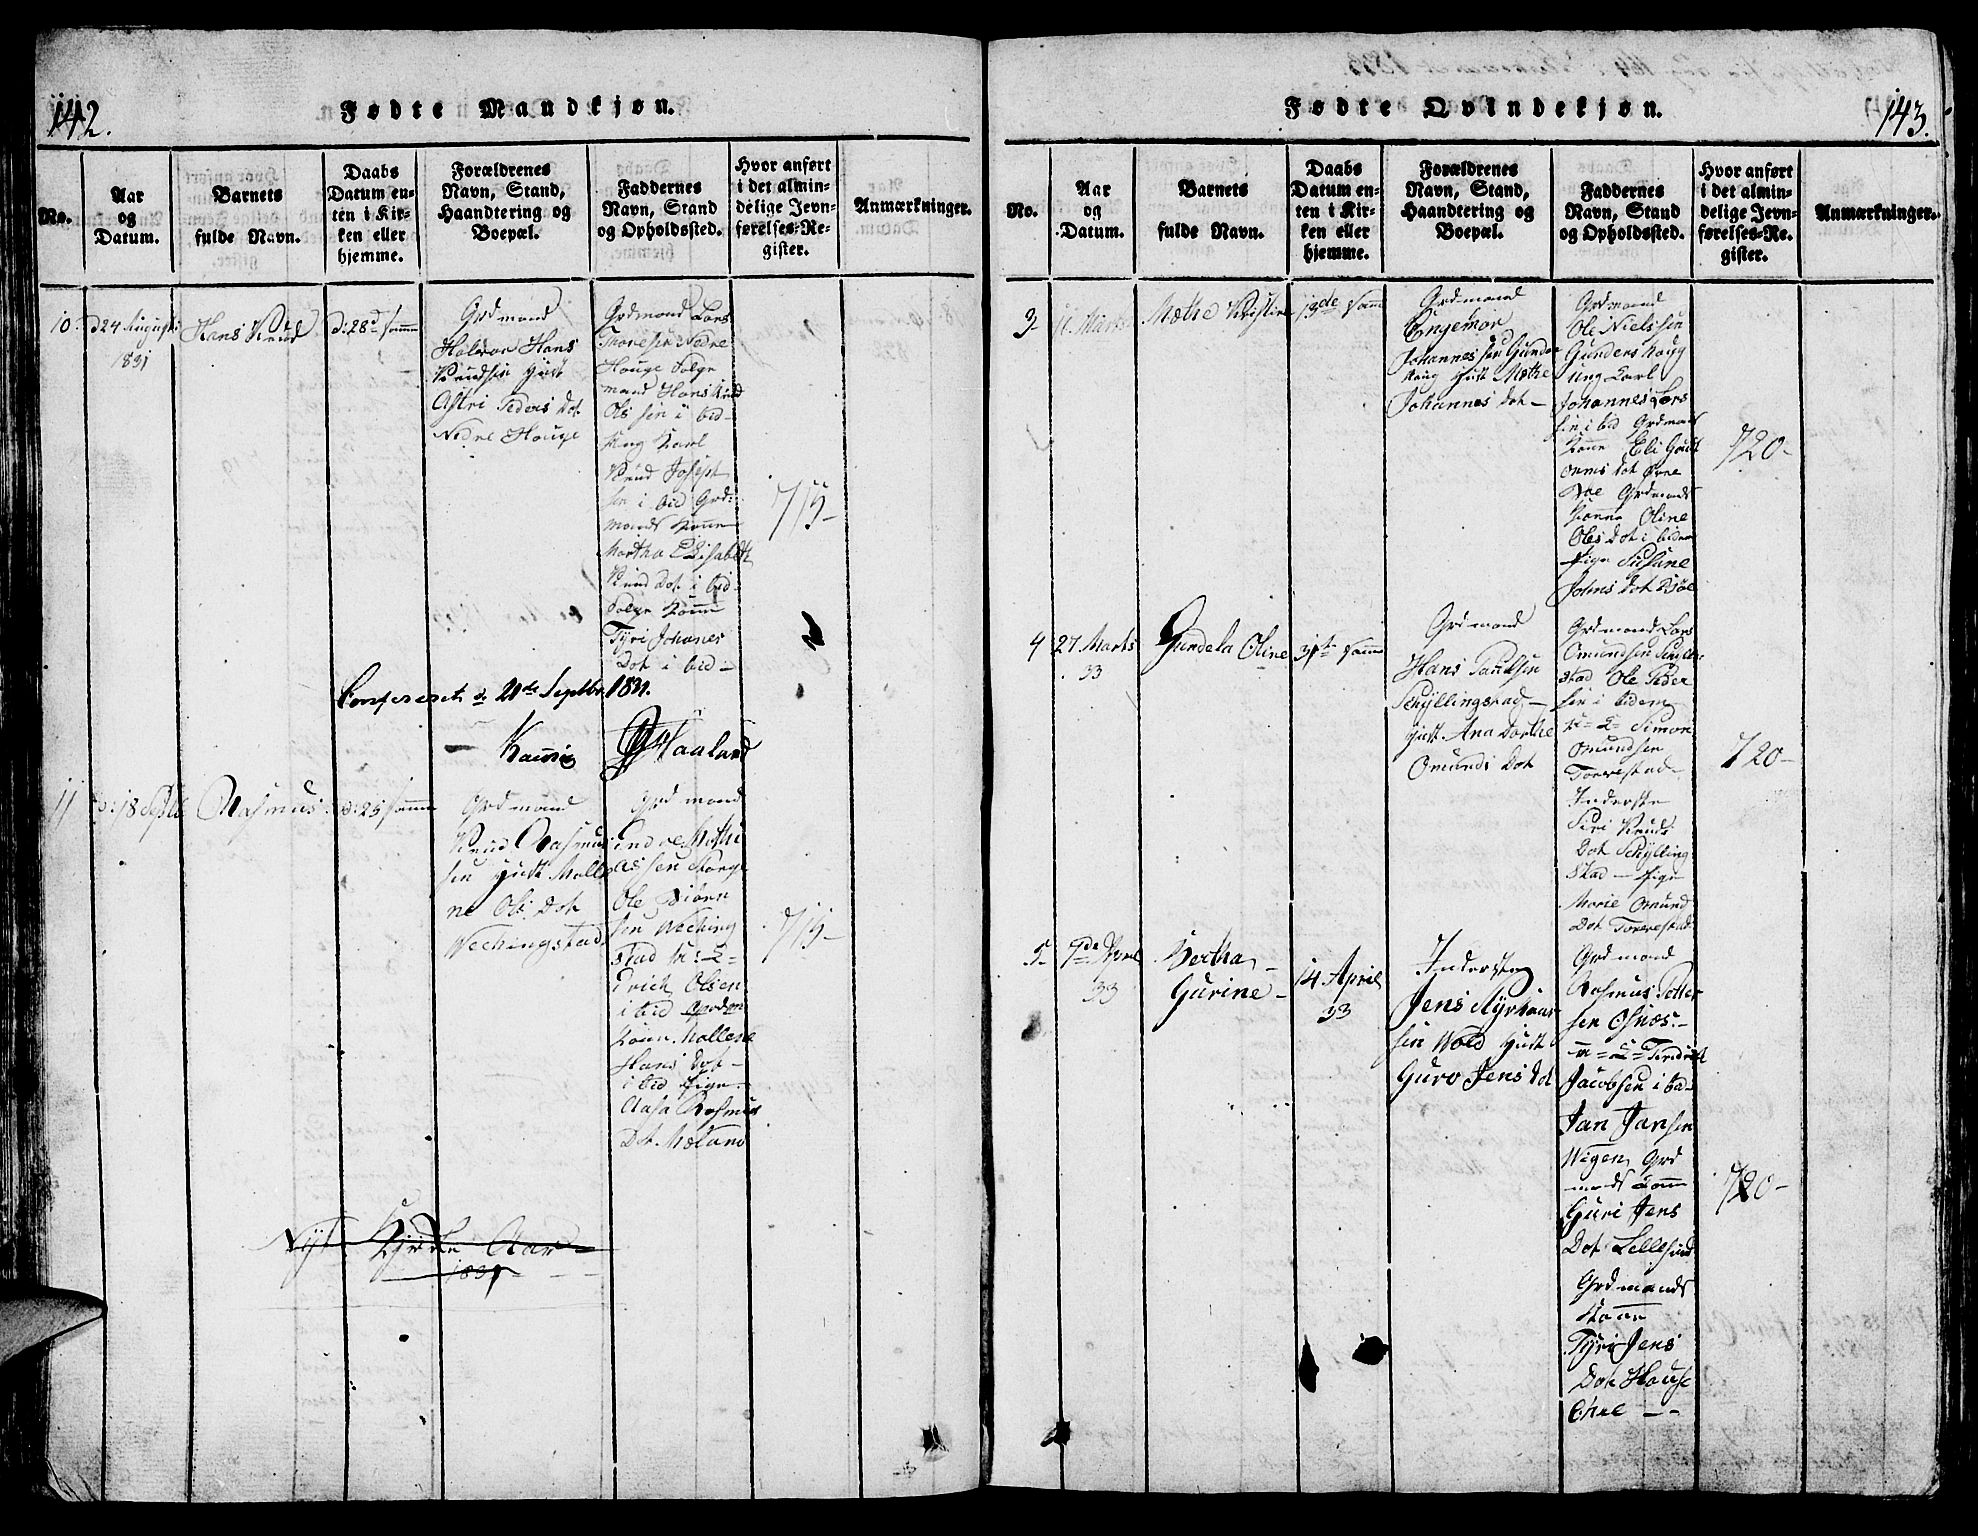 142.
Fødte Mandkjøn.
No.
Aar
og
Datum.
Barnets
fulde Navn.
Daabs
Datum en-
ten i Kir-
ken eller
hjemme.
Forældrenes
Navn, Stand,
Haandtering og
Boepæl.
Faddernes
Navn, Stand
og Opholdssted.
Hvor anført
i det almin-
delige Jevn-
førelses-Re-
gister.
Anmærkninger.
10.
d 24 August
1831
Hans Knud
d: 28d Samme
Grdmand
Halvor Hans
Knudsen Hust
Astri Peders Dot
Nedre Houge
Grdmand Lars
Thoresen Nedre
Houge
mand Hans Knud
Ols sen i bid-
Ung Karl
Knud Joseph
sen i bid Grd:
mands Konne
Martha Elisabeth
Knud Dot i bid-
Konne
Tyri Johanes
Dot i bid -
715-
Confereret d. 21de Septbr 1831.
Haaland
11
d: 18 Septb
Rasmus
d: 25 Samme
Grdmand
Knud Rasmus
sen Hust Malle
ne Ols Dot
Wechingstad
Grdmand
Endre Mathi
assen Stange
Ole Biørn
sen Weching
stad
drich Olsen
i bid Grdm
Konne Mallene
Hans Dot -
i bid Pige -
Aasa Rasmus
Dot Mæland
715-
Nyt Kirke Aar
1831
143.
Fødte Qvindekjøn.
No.
Aar
og
Datum.
Barnets
fulde Navn.
Daabs
Datum en-
ten i Kir-
ken eller
hjemme.
Forældrenes
Navn, Stand,
Haandtering og
Boepæl.
Faddernes
Navn, Stand
og Opholdssted.
Hvor anført
i det almin-
delige Jevn-
førelses-Re-
gister.
Anmærkninger.
3-
11 Marts
Mæthe Kristine
13de Samme
Grdmand
Johannessen Gunders
haug Hust Mæthe
Johannes Dot-
Grdmand
Ole Nielssen
Gunders haug
Ung Karl
Johannes Lars
sen i bid Grdmands
Konne Eli Gudt
orms Dot Øvre
Grdmands
Konne Oline
Ols Dot i bidem
Pige Susane
Johns Dot
720-
4
27 Marts
33
Gundela Oline
31te Samme
Grdmand
Hans Paulsen
Schyllingstad
Hust Ana Dorthe
Omunds Dot
Grdmand Lars
Omundsen Schylling
stad Ole Peder
sen i bidem
Simon
Omundsen
Torrestad
Inderste
Siri Knuds
Dot Schylling
stad - Pige
Marie Omund
Dot Torrestad
720-
5-
7de April
33
Bertha
Gurine -
14 April
33
Inderste
Jens
sen Wold Hust
Guro Jens Dot
Grdmand
Rasmus Petter
sen Osnæs.-
Jacobsen i bid-
Jan Jansen
Wigen Grd
mands Konne
Guri Jens
Dot Lellesund
Grdmands
Konne
Tyri Jens
Dot
720-